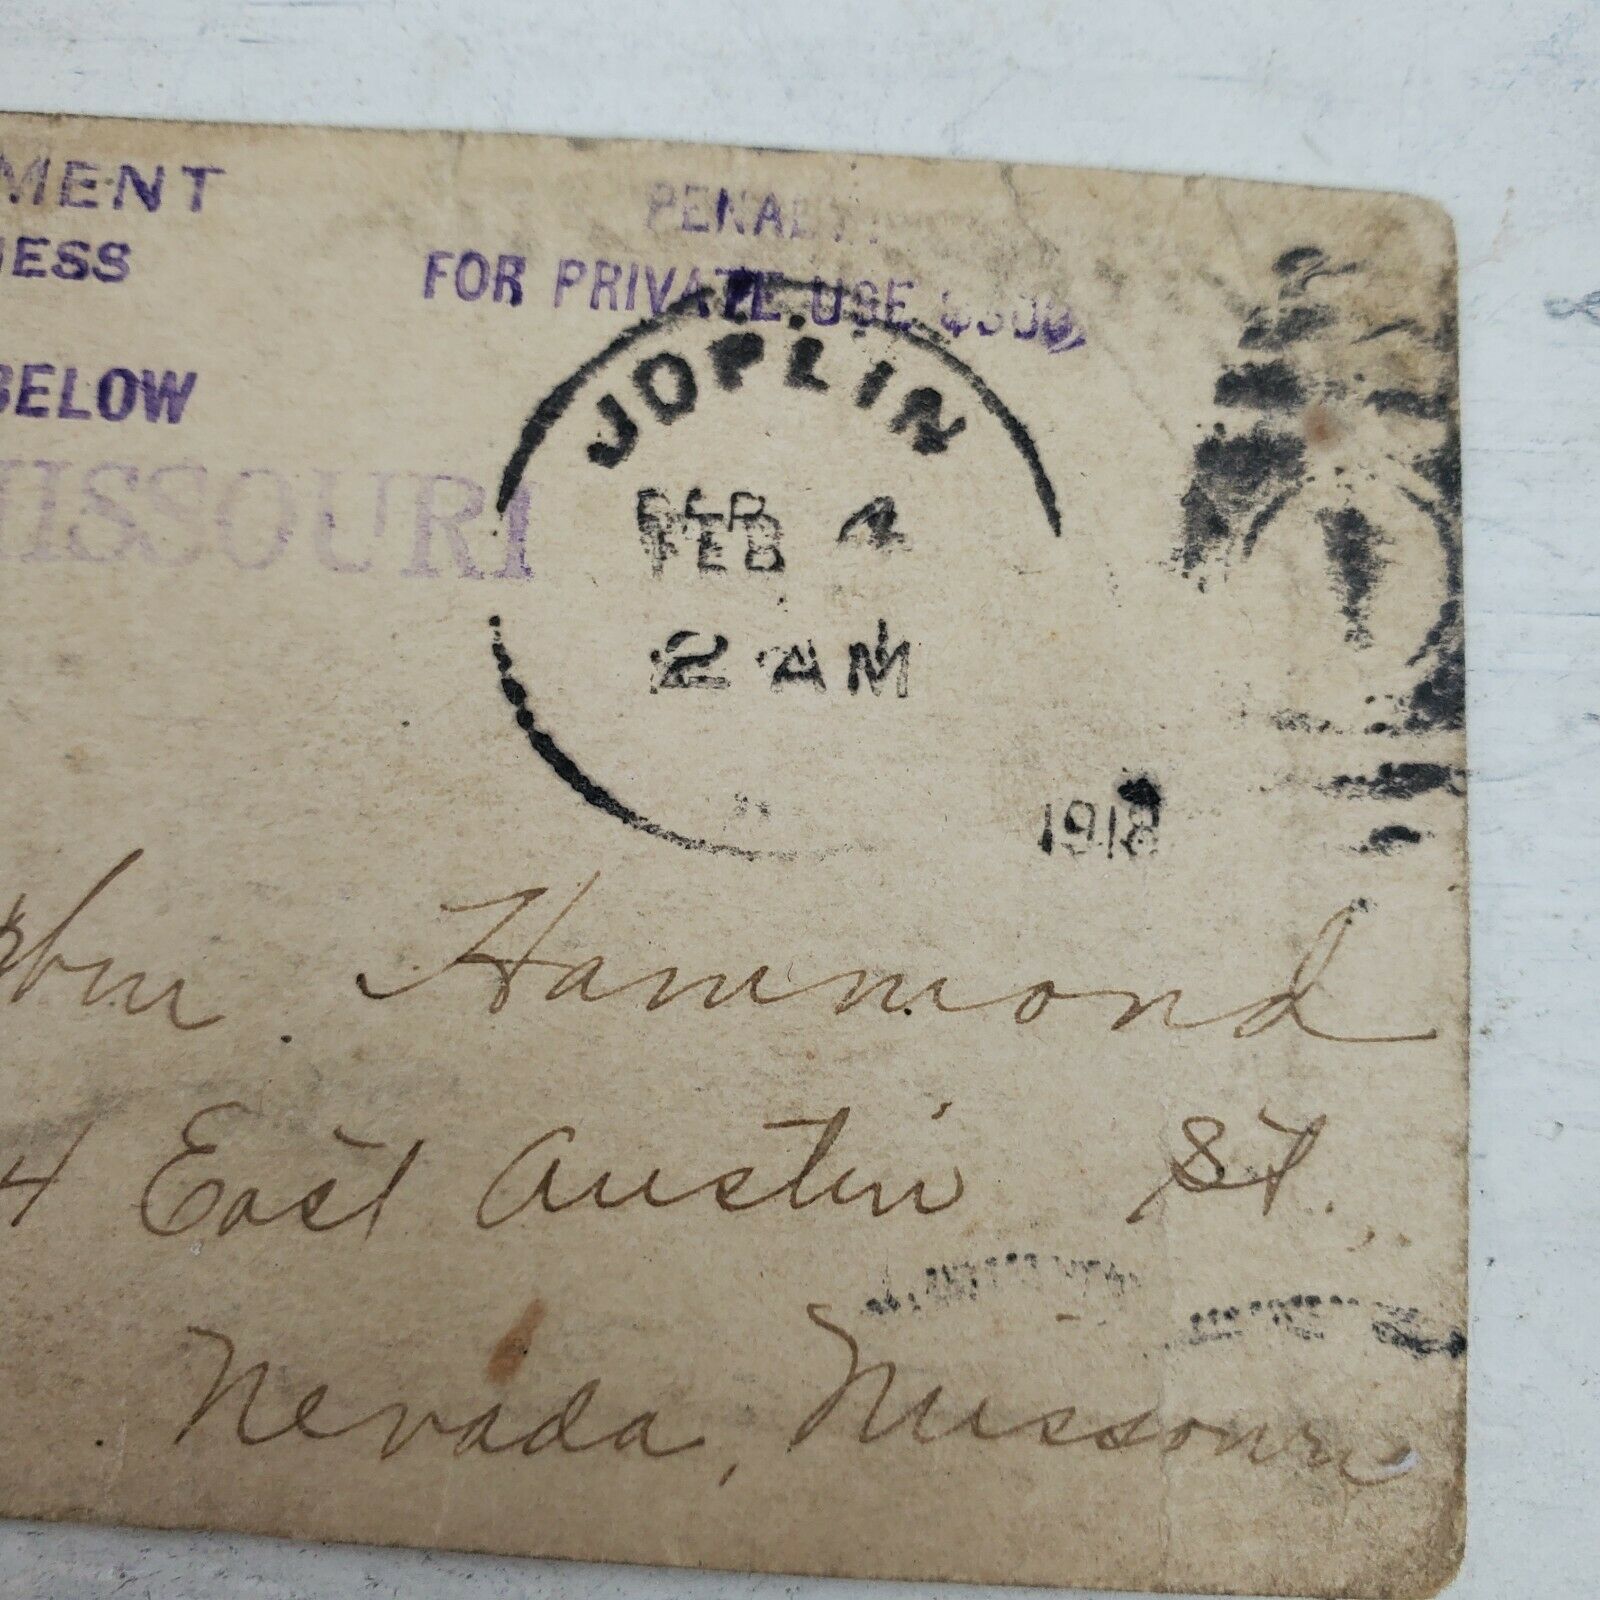 MENT
NESS
PENALTY
FOR PRIVATE USE $300
BELOW
MISSOURI
JOPLIN
FEB 4
2 AM
1918
1
Hammond
4 East Austin St.
Nevada, Missouri